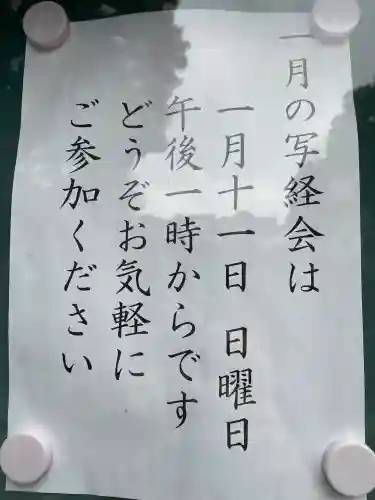 一月の写経会は
一月十一日 日曜日
午後一時からです
どうぞお気軽に
ご参加ください